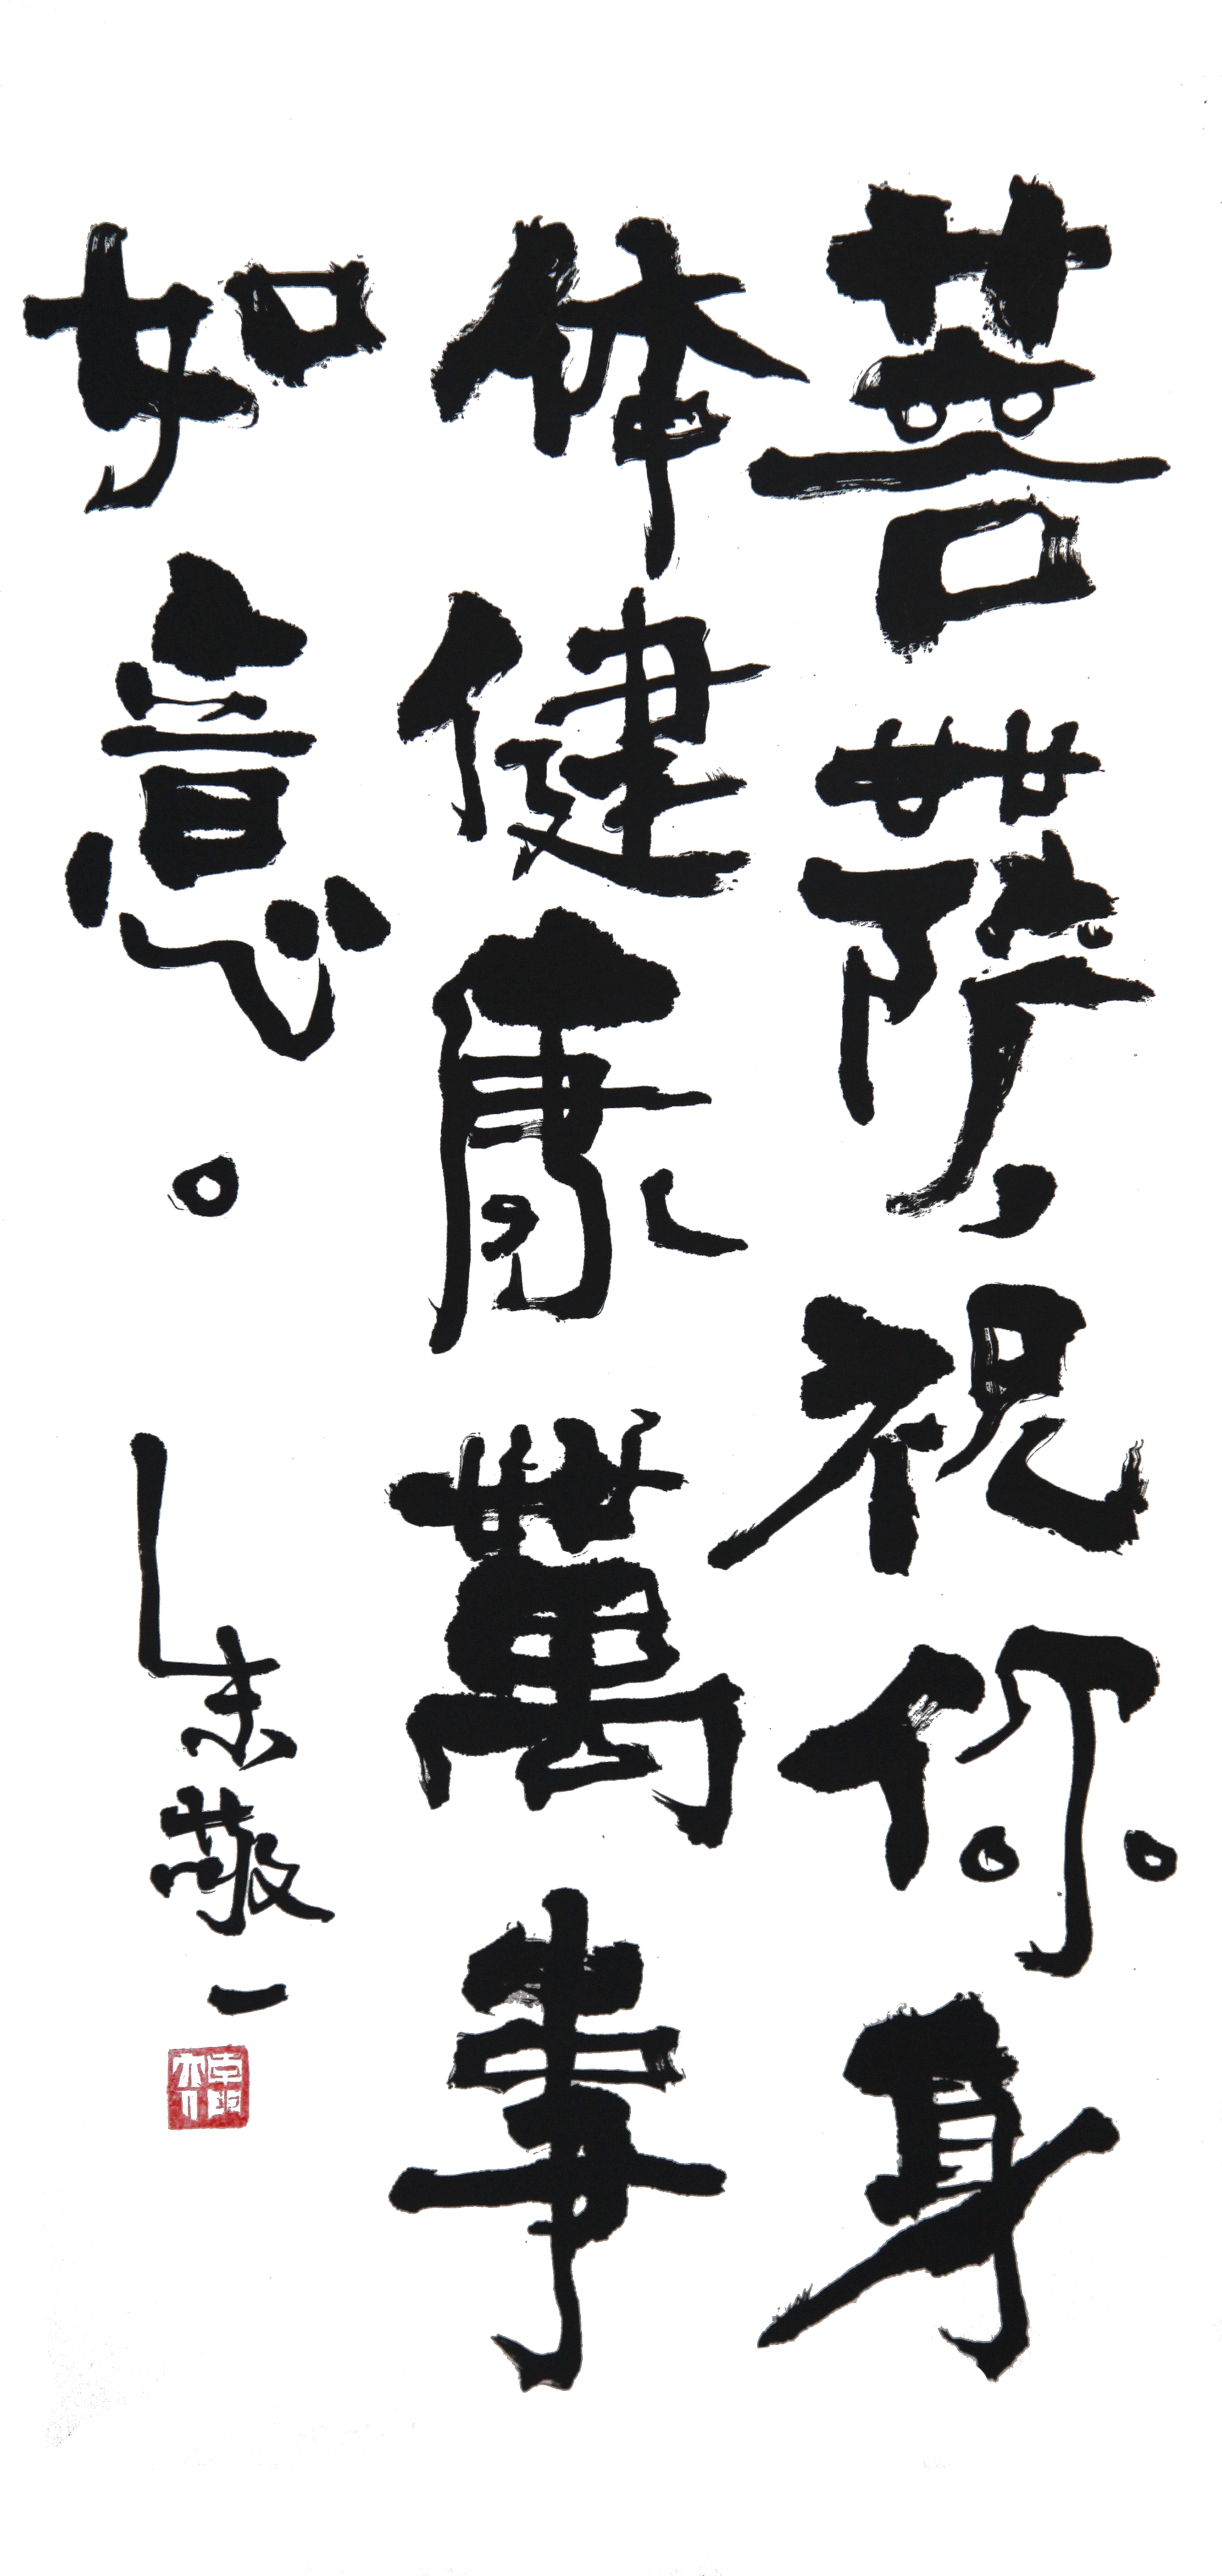 菩萨，祝你身
体健康萬事
如意。朱敬一